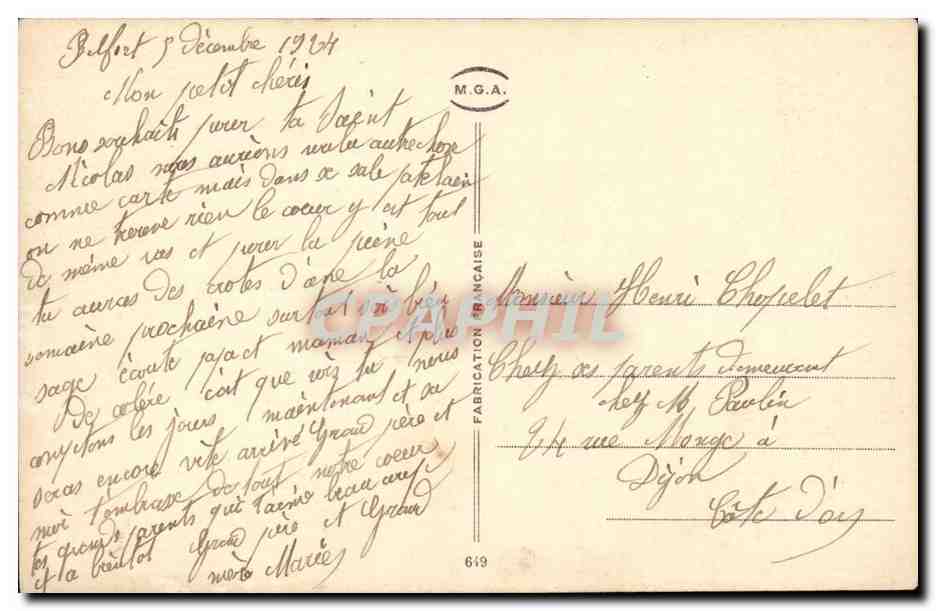 Belfort 5 décembre 1924
Mon petit chéri
Bons souhaits pour ta Saint
Nicolas nous aurions voulu autre chose
comme carte mais dans se sale patelain
on ne trouve rien le coeur y est tout
de même vas et pour la peine
tu auras des crotes d'ane la
semaine prochaine surtout soi bien
sage écoute papa et maman et plus
de colère c'ait que vois tu nous
comptons les jours maintenant et sa
seras encore vite arrivé Grand père et
moi t'embrasse de tout notre coeur
tes grands parents qui t'aime beaucoup
et a bientôt Grand père et Grand
mère Marie
M.G.A.
FABRICATION FRANÇAISE
CPAPHIL
Monsieur Henri Chopelet
Chez ses parents demeurant
chez M Paulin
24 rue Monge à
Dijon
Côte d'or
649